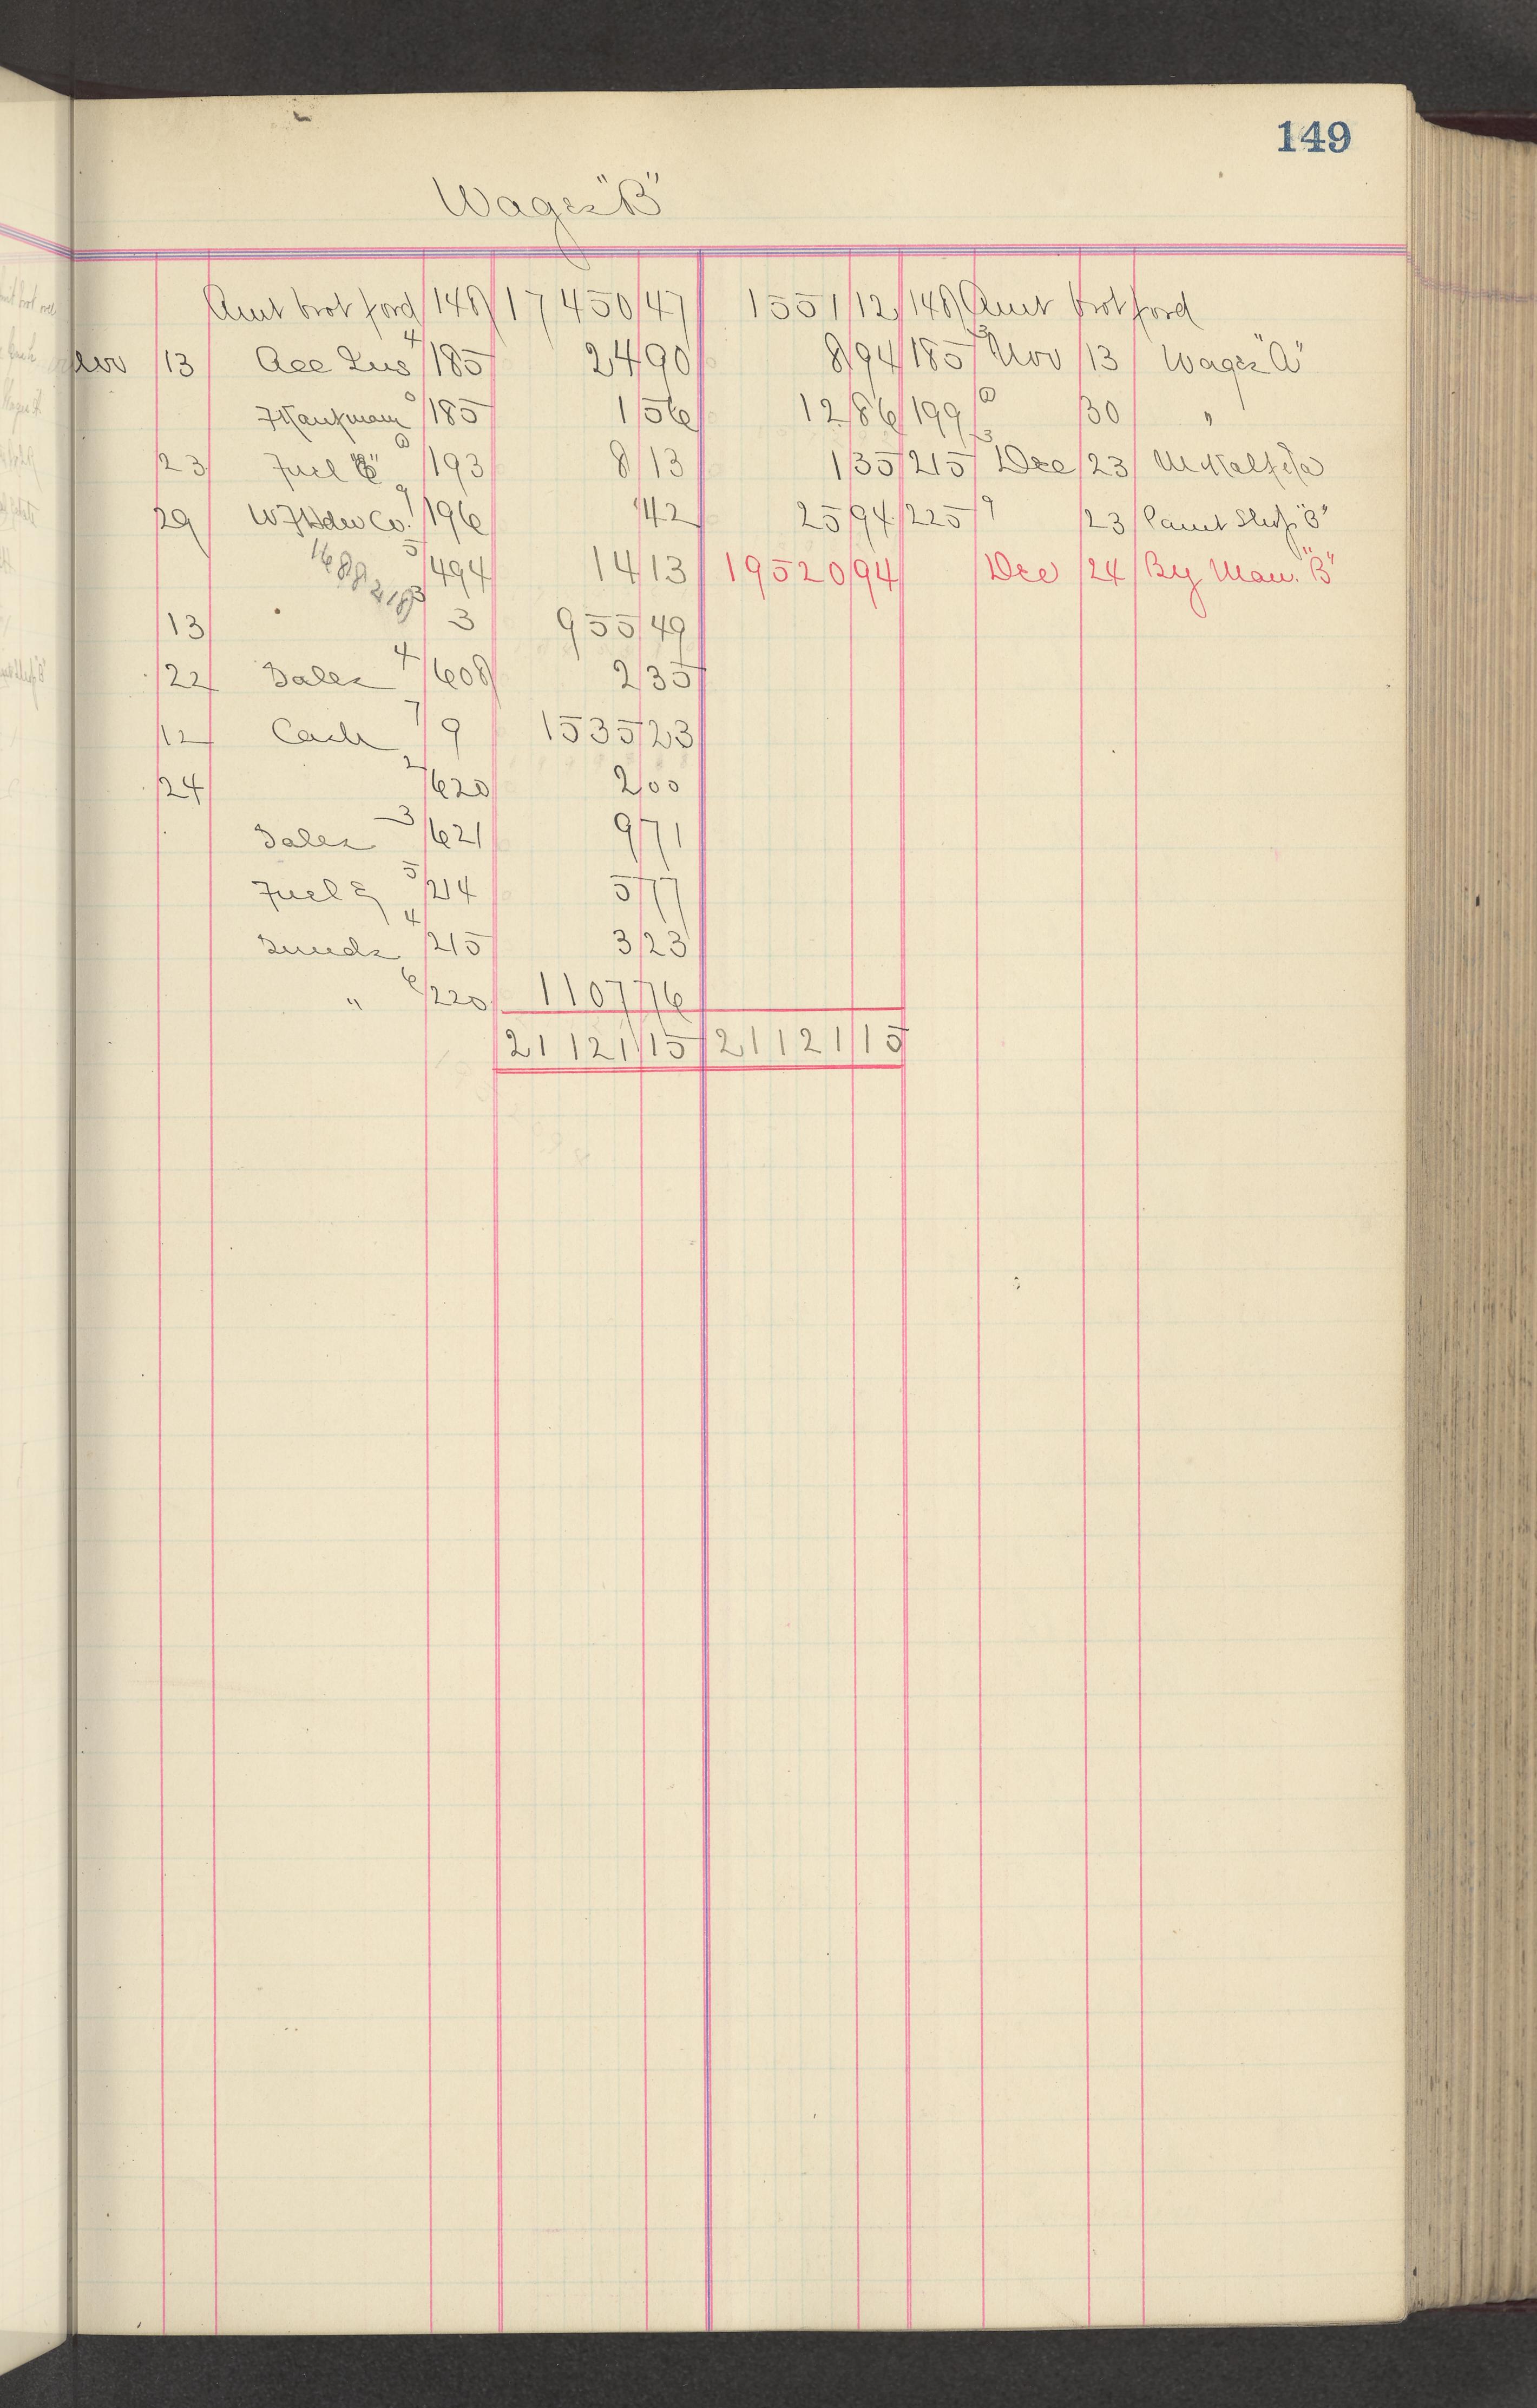 149
Wages "B"
Amt brot ford 148 17 450 47 1551 12 148 Amt brot ford
Nov 13 Acc Ins 4 185 24 90 8 94 185 3 Nov 13 Wages "A"
F Kaufman 0 185 1 56 12 86 199 0 30 "
23 Fuel "B" 0 193 8 13 1 35 215 3 Dec 23
29 W F Hdw Co. 9 196 42 25 94 225 9 23 Paint Shop "B"
5 494 14 13 19520 94 Dec 24 By Man. "B"
16882.18
13 3 3 955 49
22 Sales 4 608 2 35
12 Cash 7 9 1535 23
24 2 620 2 00
Sales 3 621 9 71
Fuel 5 214 5 77
Sunds 4 215 3 23
" 6 220 1107 76
21 121 15 21 121 15